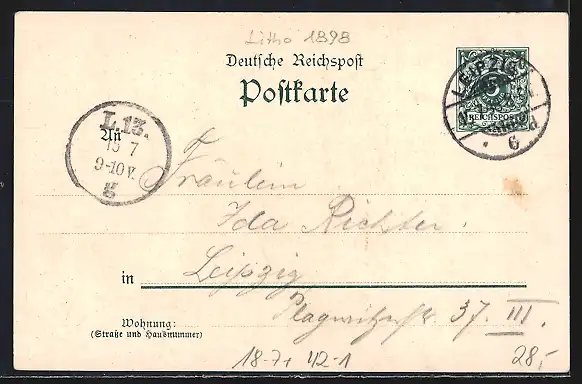 Litho 1898
Deutsche Reichspost
Postkarte
LEIPZIG
REICHSPOST
6
L.13.
15 7
9-10V.
g
An
Fräulein
Ida Richter.
in Leipzig
Plagwitzerstr. 37. III.
Wohnung:
(Straße und Hausnummer)
18-7+ 42-1
28,-